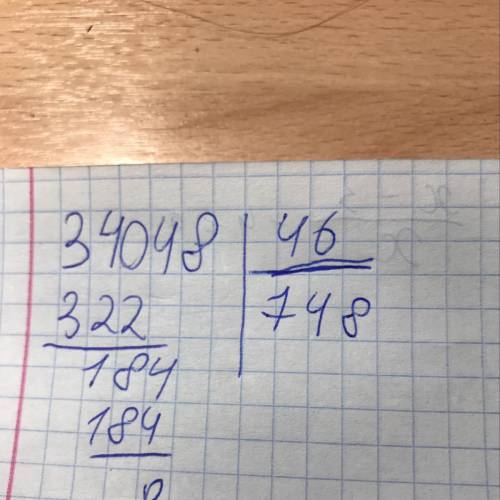 34048 | 46
322 | 748
184
184